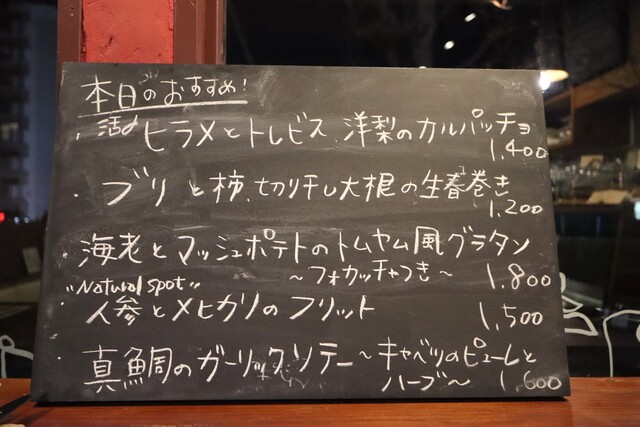 本日のおすすめ!
・活〆ヒラメとトレビス、洋梨のカルパッチョ
1,400
・ブリと柿、切り干し大根の生春巻き
1,200
海老とマッシュポテトのトムヤム風グラタン
〜フォカッチャつき〜 1,800
"Natural spot"
・人参とメヒカリのフリット 1,500
・真鯛のガーリックソテー〜キャベツのピューレと
ハーブ〜 1,600